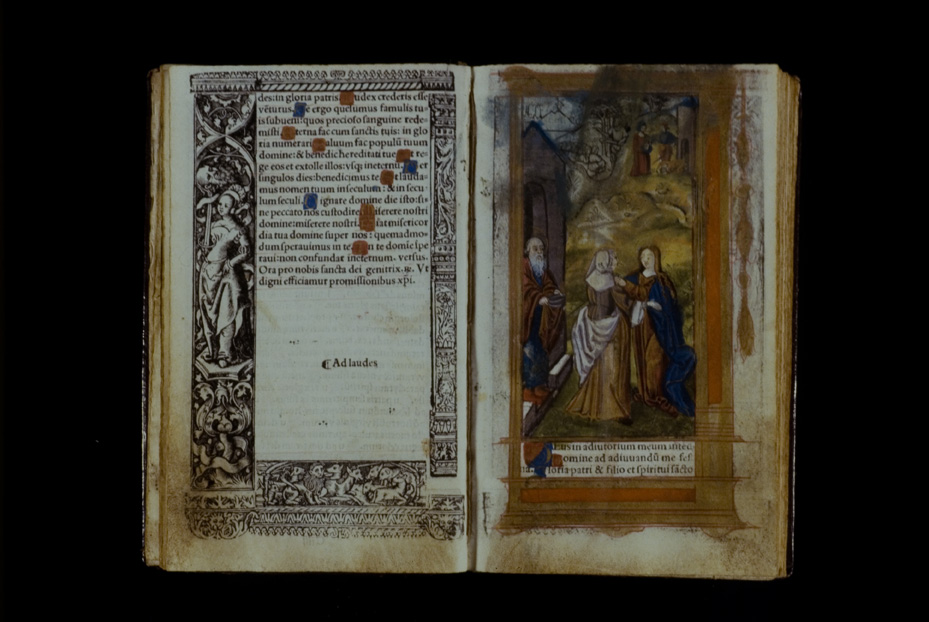 des: in gloria patris. udex crederis esse
vēturus. e ergo quesumus famulis tu-
is subueni: quos precioso sanguine rede-
misti. terna fac cum sanctis tuis: in glo
ria numerari aluum fac populū tuum
domine: & benedic hereditati tue t re-
ge eos et extolle illos: vsq; ineternū. et
singulos dies: benedicimus te t lauda-
mus nomen tuum in seculum: & in secu
lum seculi. ignare domine die isto: si-
ne peccato nos custodire iserere nostri
domine: miserere nostri. iat misericor
dia tua domine super nos: quemadmo-
dum sperauimus in te n te domie spe
raui: non confundar ineternum. versus.
Ora pro nobis sancta dei genitrix. Vt
digni efficiamur promissionibus xpi.
¶ Ad laudes
Eus in adiutorium meum inten
omine ad adiuuandū me fes
loria patri & filio et spiritui sācto